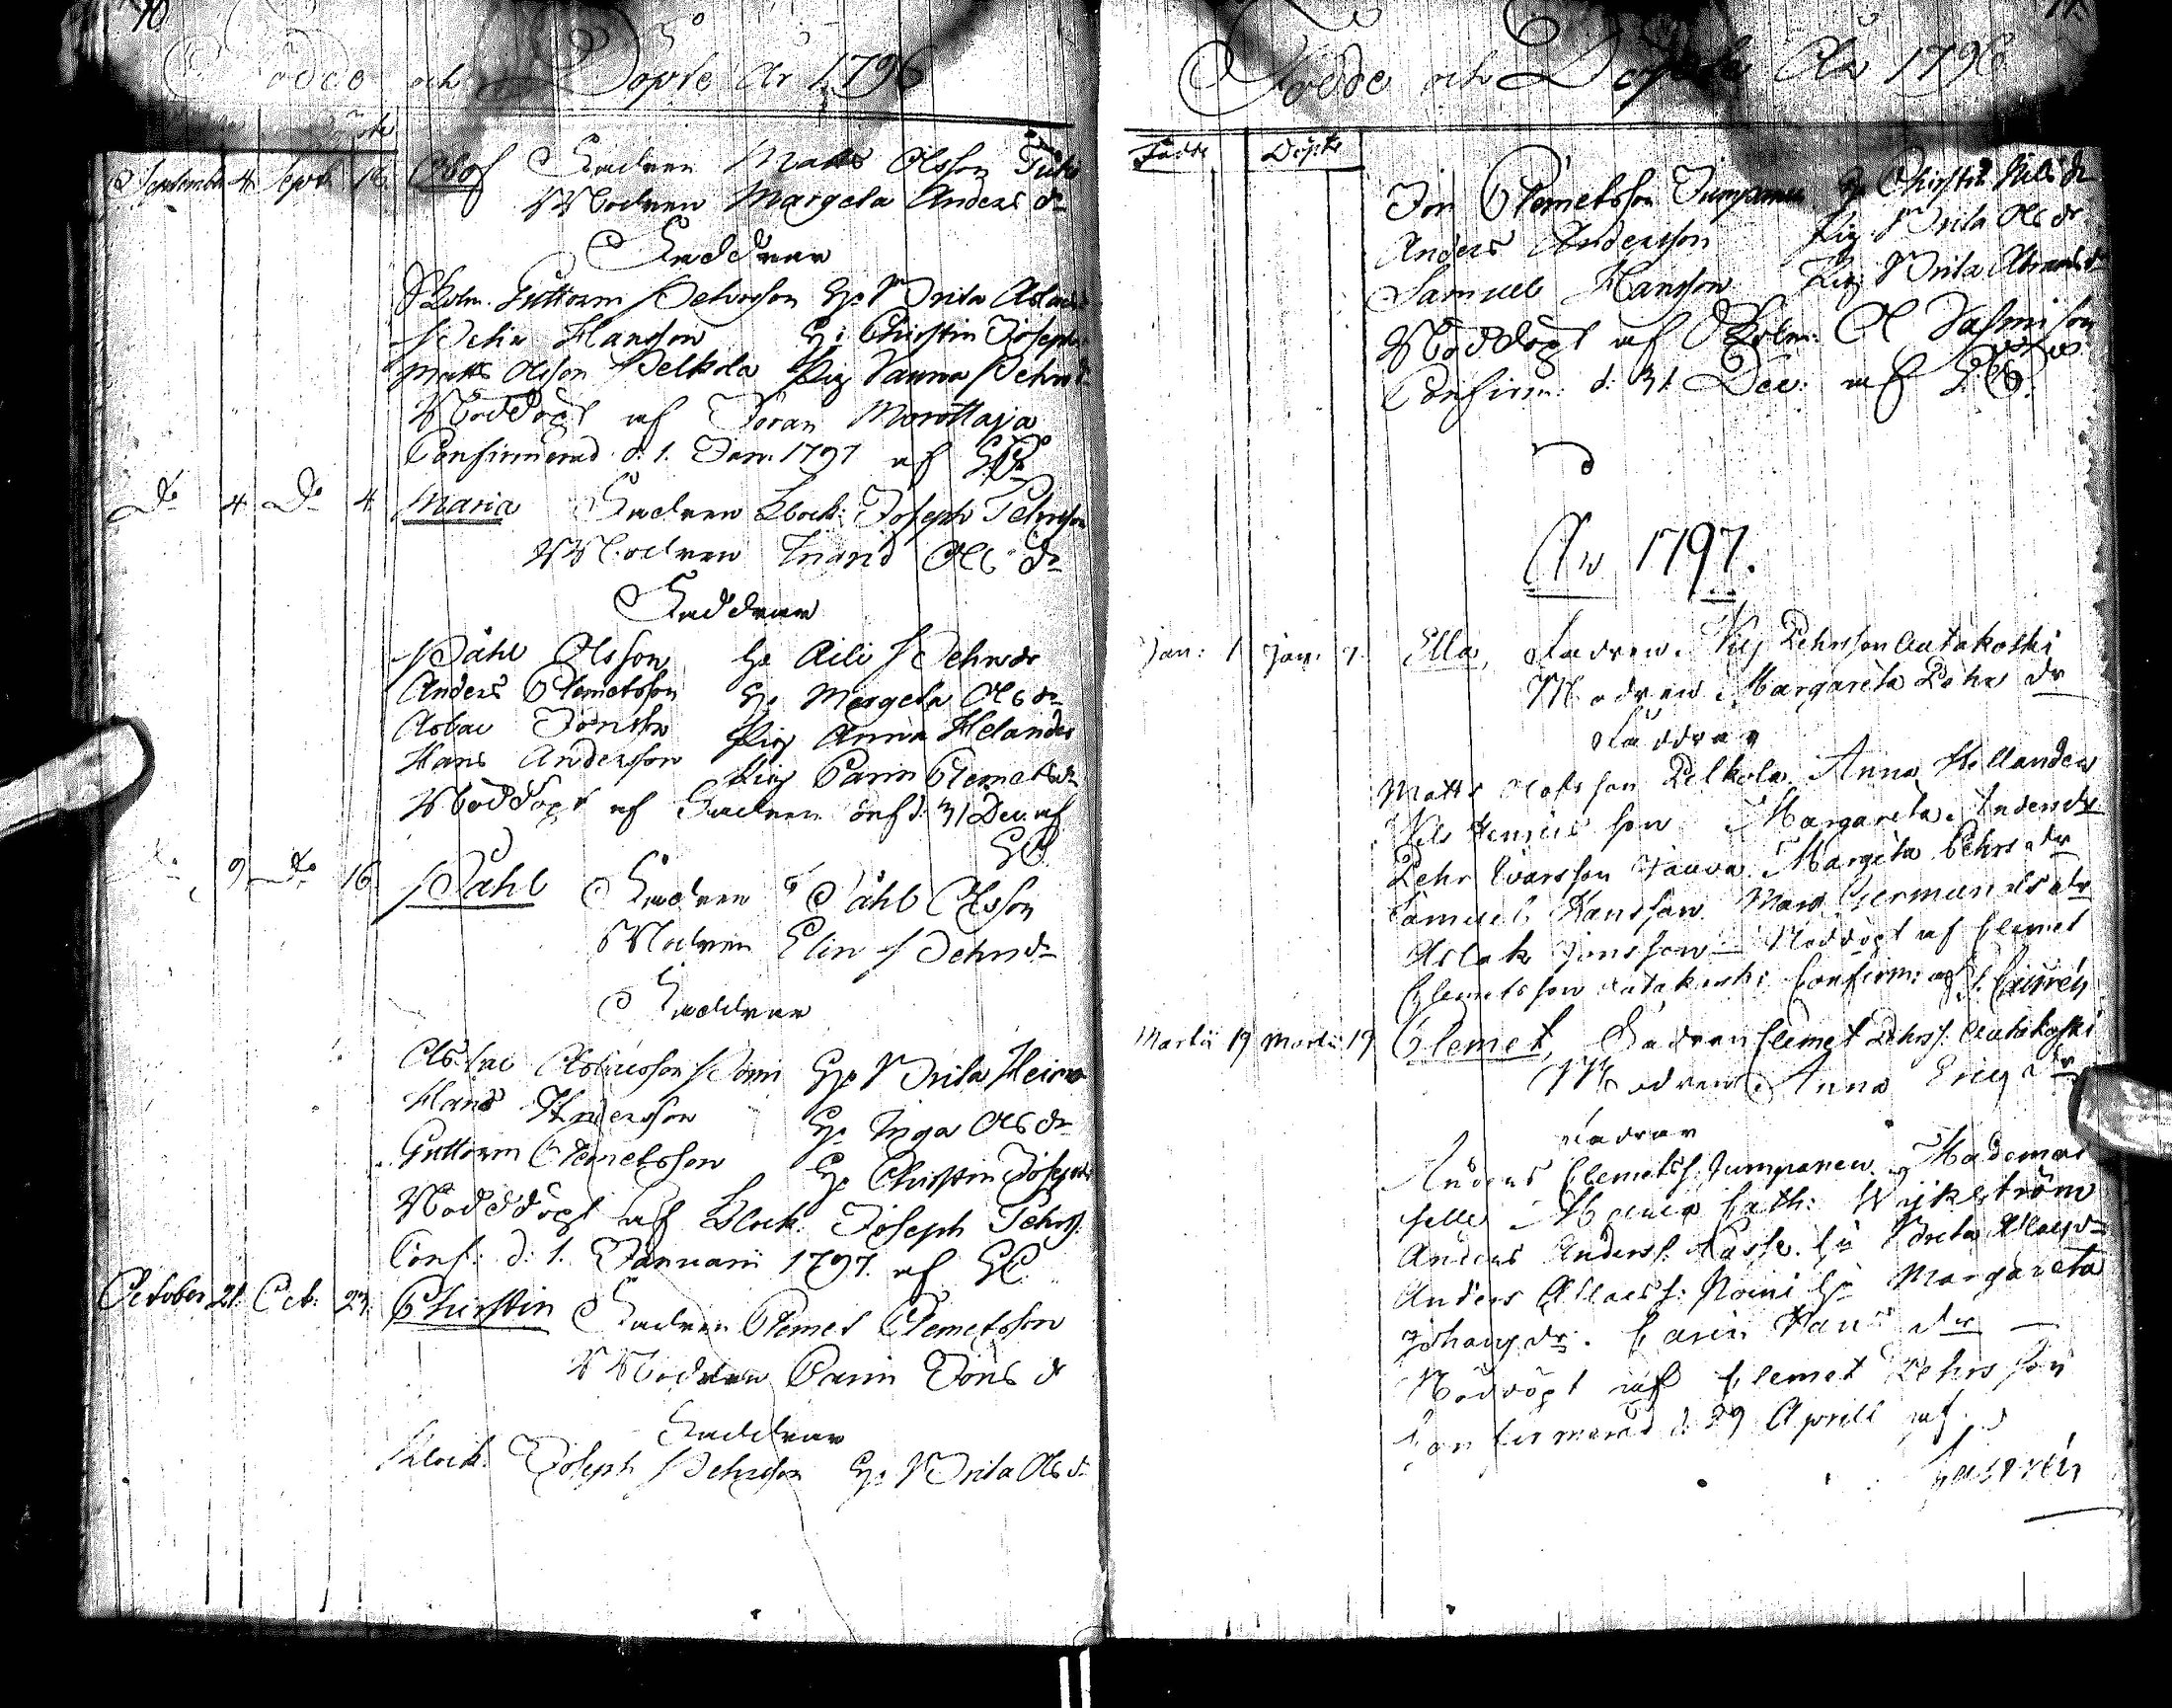 10
Födde och Döpte År 1796
Döpte
September 4 Sept: 16 Olof Fadren Matts Olsson
Modren Margeta Anders dr
Faddrar
Guttorm Pehrsson Hu Brita
Pehr Hansson Hu Christin Joseph
Matts Olsson Pelkola Pig Pehrs
Nöddöpt af Jöran Morottaja
Confirmerad d. 1. Jan: 1797 af
Do 4 Do 4 Maria Fadren Klock: Joseph Pehrsson
Modren Ingrid Ols dr
Faddrar
Påhl Olsson Hu Aili Pehrsdr
Anders Clemetsson Hu Margeta Ols dr
Aslac Jonsson Pig Anna Helander
Hans Andersson Pig Carin Clemetsdr
Nöddöpt af Fadren Conf d. 31 Dec af
EC
Do 9 Do 16 Påhl Fadren Påhl Olsson
Modren Elin Pehrsdr
Faddrar
Aslac Aslacsson Hu Brita
Hans Andersson Hu Inga Ols dr
Guttorm Clemetsson Hu Christin Josephs
Nöddöpt af Klock: Joseph Pehrss:
Conf: d: 1. Januarii 1797. af EC
October 21. Oct: 23. Christin Fadren Clemet Clemetsson
Modren Carin Jons dr
Faddrar
Klock. Joseph Pehrsson Hu Brita Ols dr
11.
Födde och Döpte År 1796
Födde Döpte
Jon Clemetsson Jumpanen Hu Christin Nils dr
Anders Andersson Pig Brita Ols dr
Samuel Hansson Pig Brita
Nöddöpt af
Confirm: d: 31. Dec: af
År 1797.
Jan: 1 Jan: 7. Ella, Fadren. Pehrsson Autakoski
Modren Margareta Pehrs dr
Faddrar
Matts Olofsson Pelkola Anna Hellander
Nils Margareta Andersdr
Pehr Ivarsson Margeta Pehrs dr
Samuel Hansson Marg. Germundsdr
Aslak Jonsson Nöddöpt af Clemet
Clemetsson Autakoski Confirm: af Castrén
Martii 19 Martii 19 Clemet, Fadren Clemet Pehrss: Autakoski
Modren Anna Erics dr
Fadrar
Anders Clemetss: Jumpanen Mademoi
selle Maria Cath: Wijkström
Anders Anderss: Hu Brita
Anders Hu Margareta
Johans dr. Carin Hans dr
Nöddöpt af Clemet Pehrsson
Confirmerad d. 29 Aprill af
Castrén